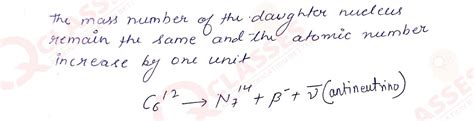 The mass number of the daughter nucleus
remain the same and the atomic number
increase by one unit
C₆¹² → N₇¹⁴ + β⁻ + ν̄ (antineutrino)